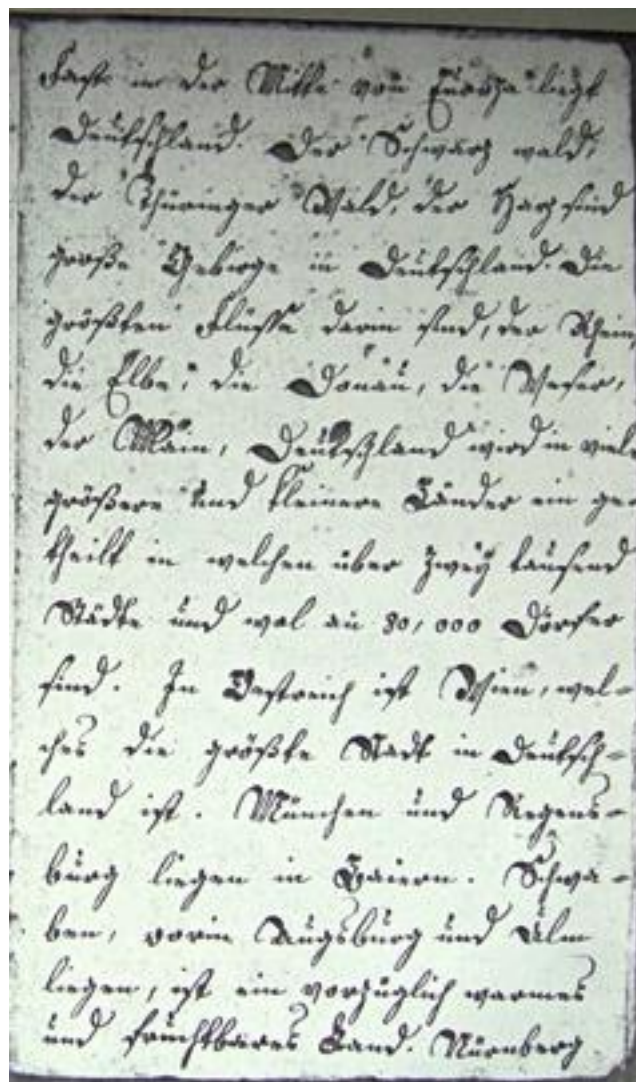 Fast in der Mitte von Europa liegt
Deutschland. Der Schwarz wald,
der Thüringer Wald, der Harz sind
große Gebirge in Deutschland. Die
größten Flüsse darin sind, der Rhein,
die Elbe, die Donau, die Weser,
der Main, Deutschland wird in viele
größere und kleinere Länder ein ge
theilt in welchen über zwey tausend
Städte und wol an 80,000 Dörfer
sind. In Oestreich ist Wien, wel-
ches die größte Stadt in Deutsch-
land ist. München und Regens-
burg liegen in Baiern. Schwa-
ben, worin Augsburg und Ulm
liegen, ist ein vorzüglich warmes
und fruchtbares Land. Nürnberg